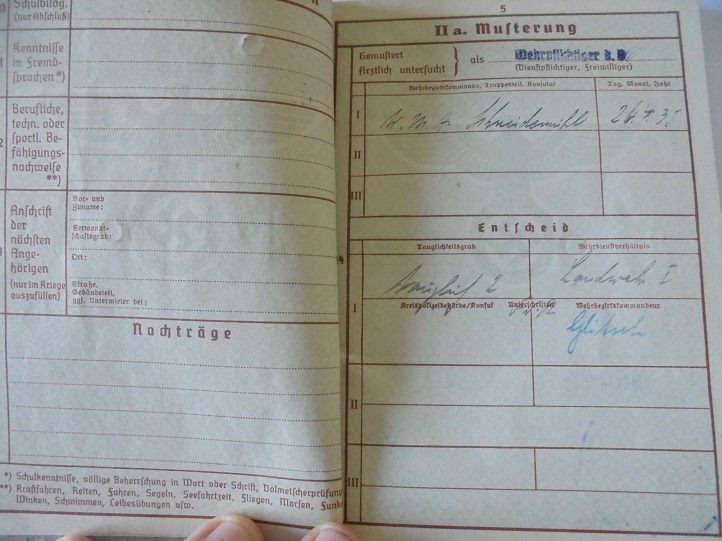 Schulbildg.
(nur Abschluß)
Kenntnisse
in Fremd-
sprachen *)
Berufliche,
techn. oder
sportl. Be-
fähigungs-
nachweise
**)
Anschrift
der
nächsten
Ange-
hörigen
(nur im Kriege
auszufüllen)
Vor- und
Zuname:
Verwandt-
schaftsgrad:
Ort:
Straße,
Gebäudeteil,
ggf. Untermieter bei:
Nachträge
*) Schulkenntnisse, völlige Beherrschung in Wort oder Schrift, Dolmetscherprüfung
**) Kraftfahren, Reiten, Fahren, Segeln, Seefahrtzeit, Fliegen, Morsen, Funk
Winken, Schwimmen, Leibesübungen usw.
5
IIa. Musterung
Gemustert
Ärztlich untersucht } als Wehrpflichtiger d.
(Dienstpflichtiger, Freiwilliger)
Wehrbezirkskommando, Truppenteil, Konsulat Tag, Monat, Jahr
I Schneidemühl
II
III
Entscheid
Tauglichkeitsgrad Wehrdienstverhältnis
Tauglich 2 Landwehr I
I Kreispolizeibehörde/Konsul Unterschriften Wehrbezirkskommandeur
II
III